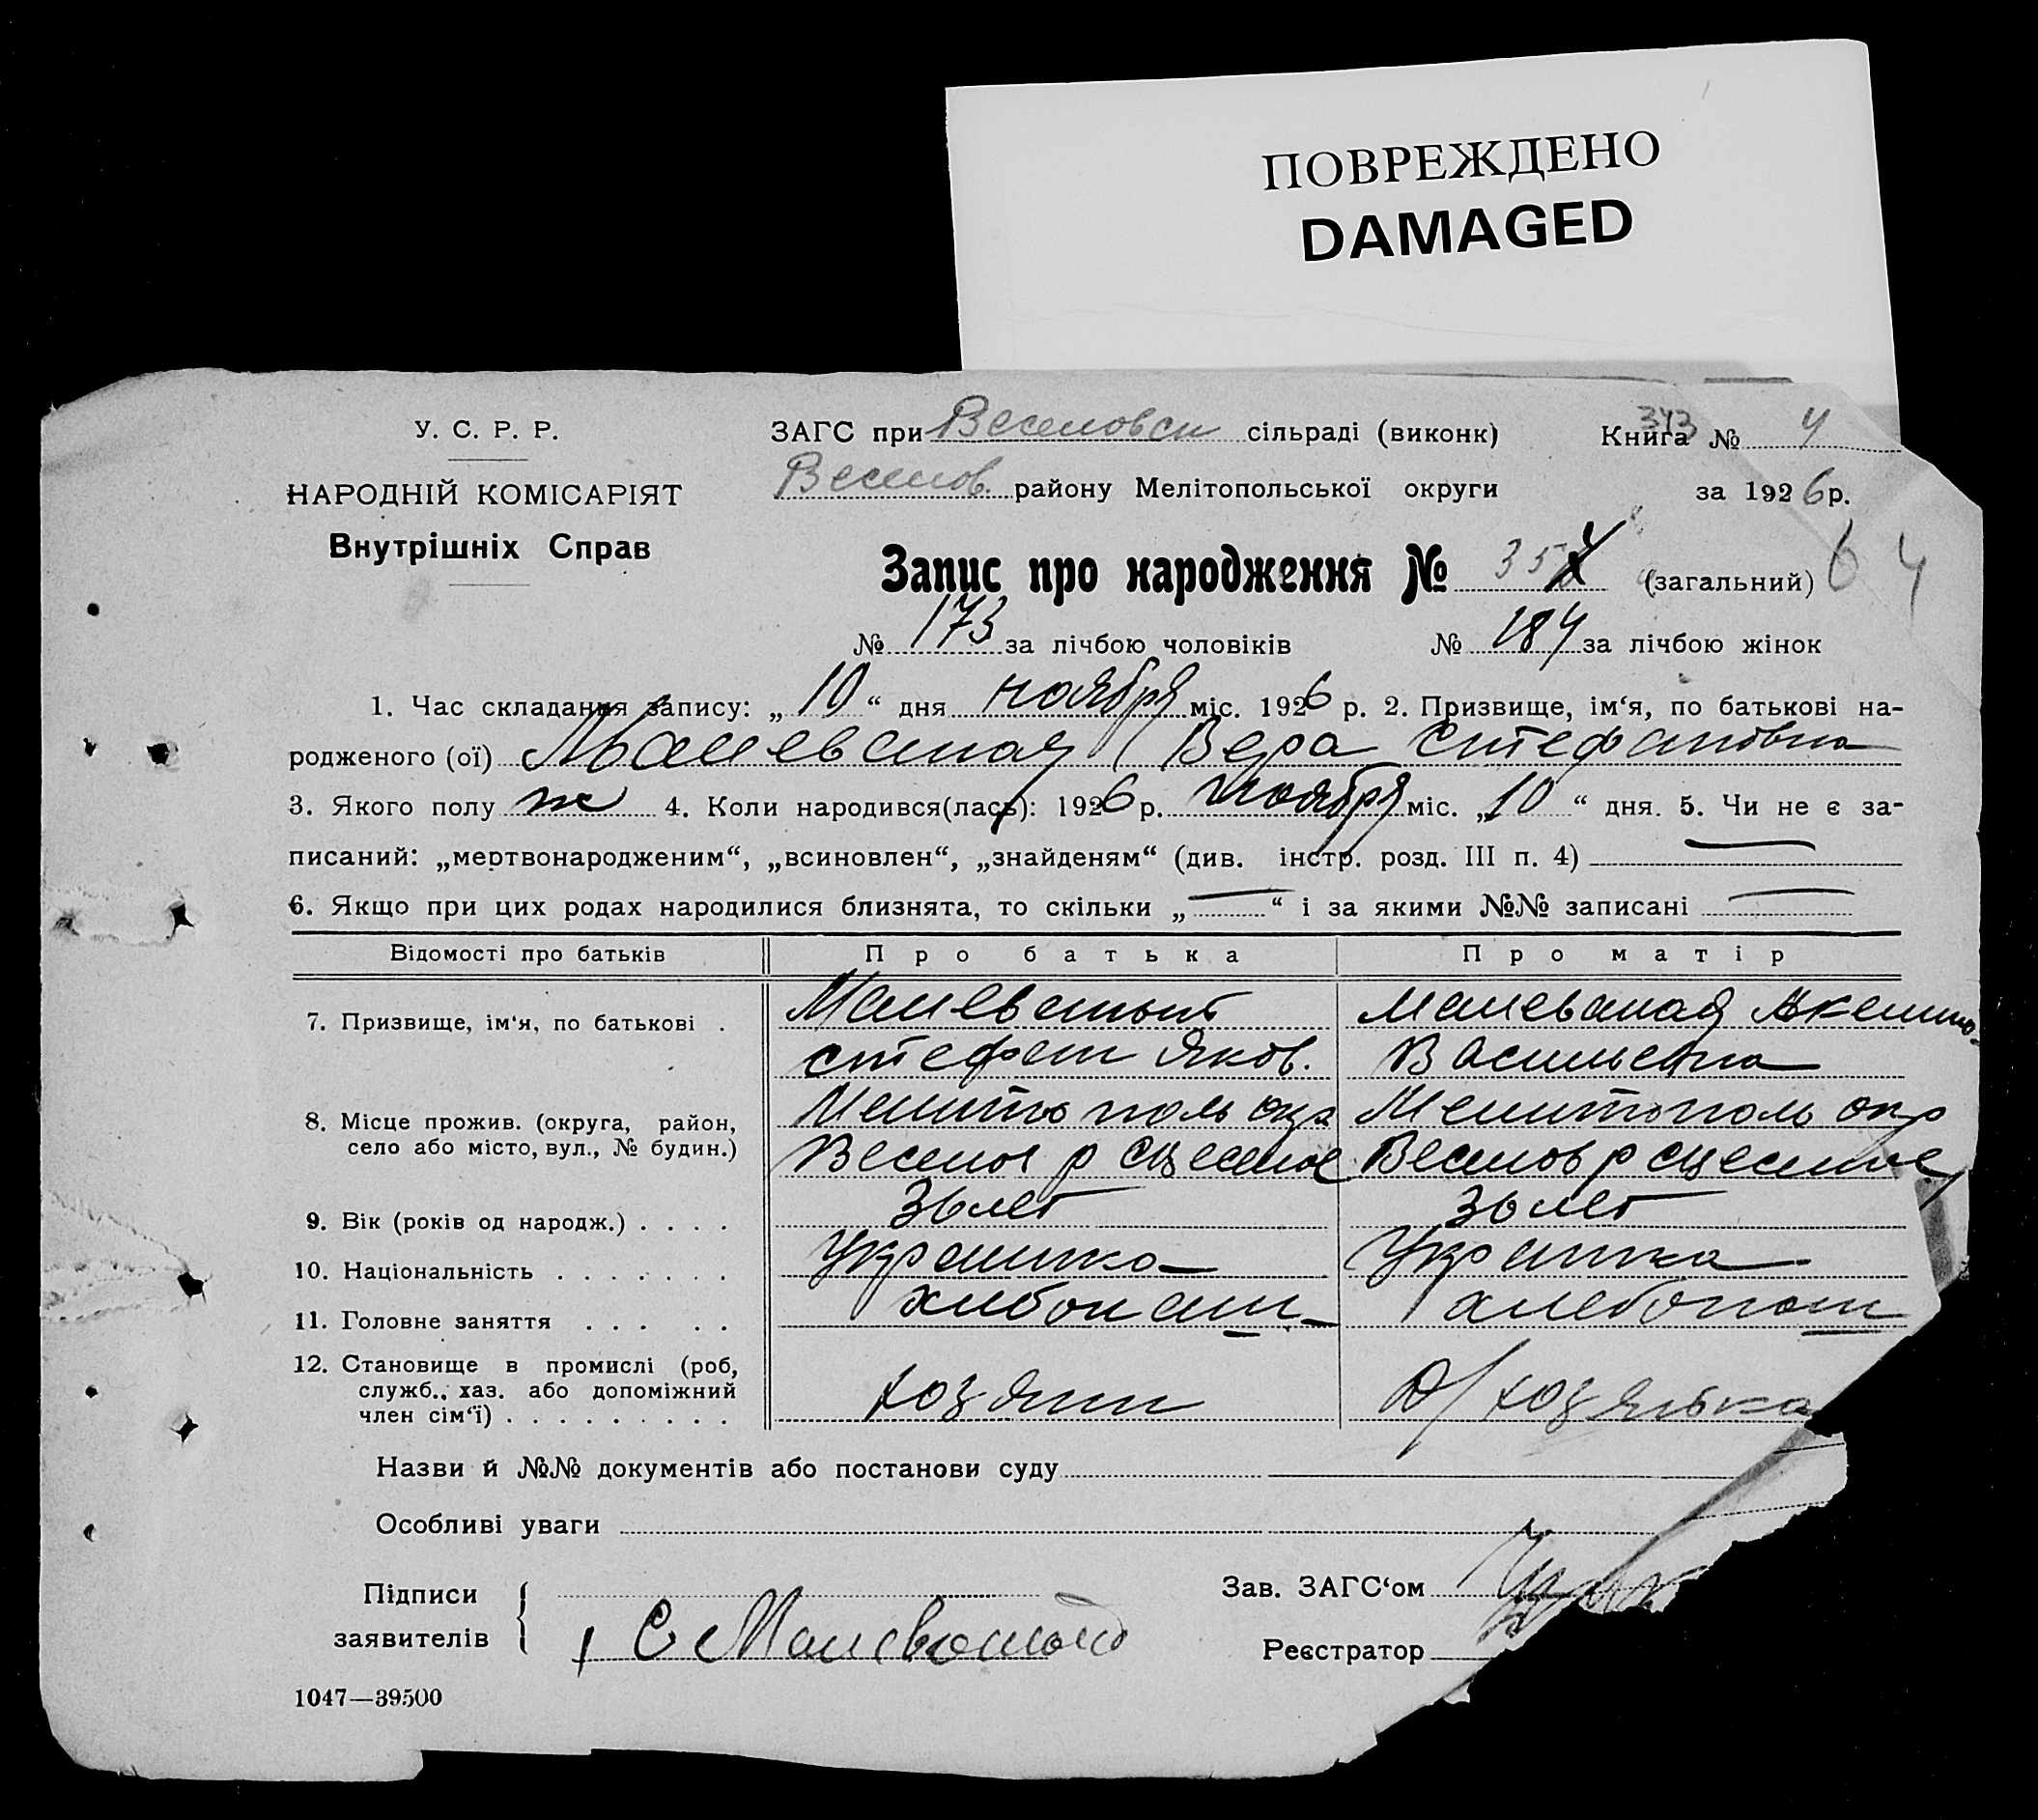 ПОВРЕЖДЕНО
DAMAGED
У. С. Р. Р.
НАРОДНІЙ КОМІСАРІЯТ
Внутрішніх Справ
ЗАГС при Веселовск сільраді (виконк)
Книга № 4
343
Веселов. району Мелітопольської округи
за 1926 р.
Запис про народження № 35 (загальний)
64
№ 173 за лічбою чоловіків № 184 за лічбою жінок
1. Час складання запису: „10“ дня ноября міс. 1926 р. 2. Призвище, ім‘я, по батькові на-
родженого (ої) Малеваная Вера Стефановна
3. Якого полу ж 4. Коли народився(лась): 1926 р. ноября міс. „10“ дня. 5. Чи не є за-
писаний: „мертвонародженим“, „всиновлен“, „знайденям“ (див. інстр. розд. III п. 4) —
6. Якщо при цих родах народилися близнята, то скільки „—“ і за якими №№ записані —
Відомості про батьків Про батька Про матір
7. Призвище, ім‘я, по батькові . Малеваный Малеваная
Стефан Яков. Васильевна
8. Місце прожив. (округа, район, Мелитополь окр Мелитополь окр
село або місто, вул., № будин.) Веселов р Веселов р
9. Вік (років од народж.) . . . . 36 лет 36 лет
10. Національність . . . . . . . Украинка
11. Головне заняття . . . . . хлебопаш
12. Становище в промислі (роб,
служб., хаз. або допоміжний
член сім‘ї) . . . . . . . . . хозяин Д/хозяйка
Назви й №№ документів або постанови суду
Особливі уваги
Підписи
заявителів
С Малеваный
Зав. ЗАГС‘ом
Реєстратор
1047—39500